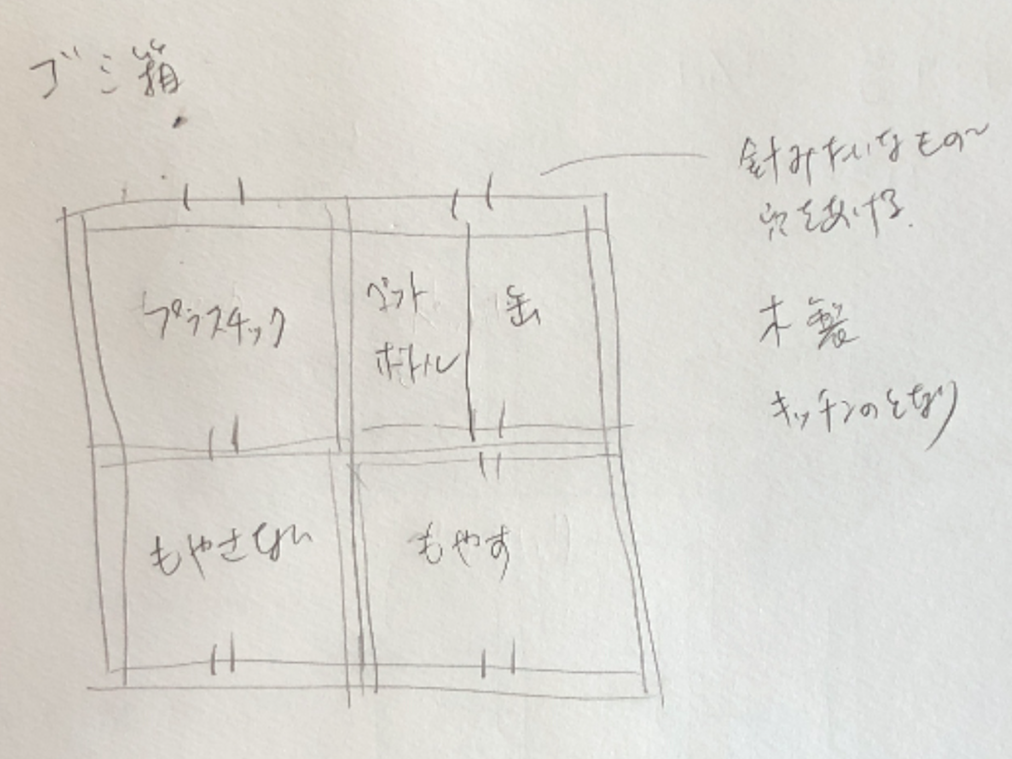 ゴミ箱
針みたいなもの〜
穴をあける.
木製
キッチンのとなり
プラスチック
ペット
ボトル
缶
もやさない
もやす